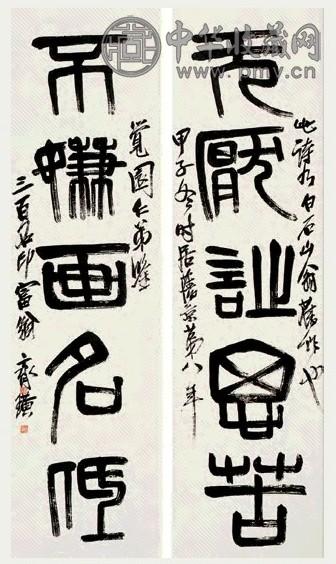 中华收藏网
www.pmy.cn
此詩乃白石山翁舊作也
厭詩思苦
甲子冬时居舊京第八年
覺園仁弟鑒
不嫌画名低
三百石印富翁 齊璜